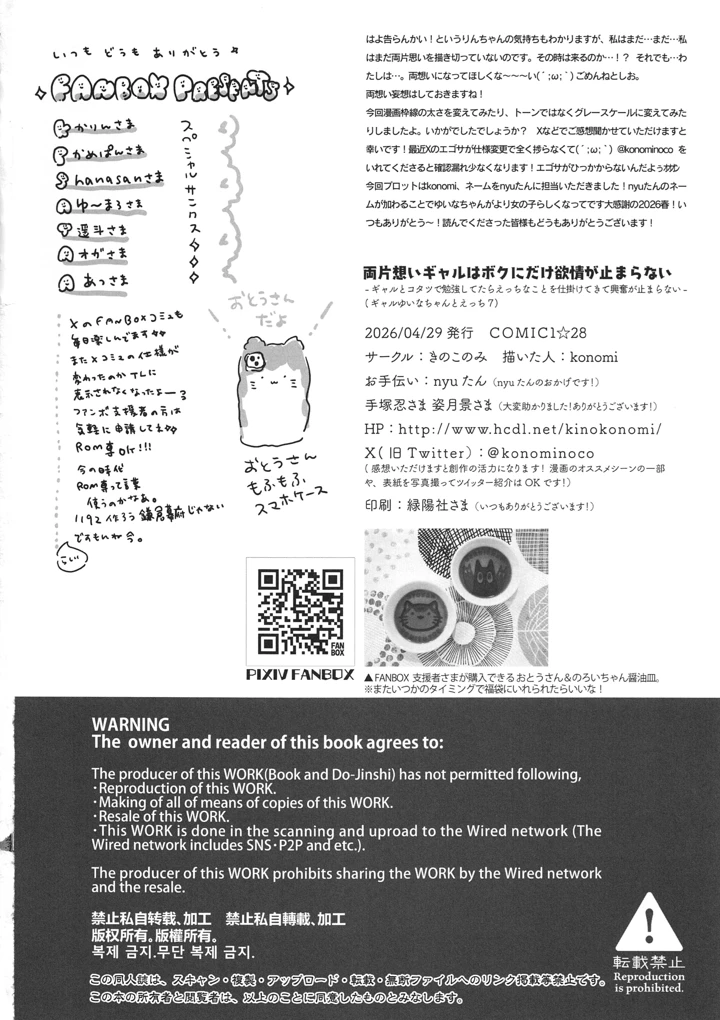 いつも どうも ありがとう
FANBOX PRESENTS
かりんさま
かめぱんさま
hanasanさま
ゆ〜まろさま
遥斗さま
オガさま
あっさま
スペシャルサンクス
XのFANBOXコミュも
毎日楽しんでます
またXコミュの仕様が
変わったのかTLに
表示されなくなったよー
ファンボ支援者の方は
気軽に申請してえ
ROM専OK!!!
今の時代
ROM専って言葉
使うのかなあ。
1192作ろう鎌倉幕府じゃない
でおもいね今。
おとうさん
だよ
おとうさん
もふもふ
スマホケース
FAN
BOX
PIXIV FANBOX
はよ告らんかい！というりんちゃんの気持ちもわかりますが、私はまだ…まだ…私
はまだ両片思いを描き切っていないのです。その時は来るのか…！？ それでも…わ
たしは…。両想いになってほしくな〜〜〜い(´;ω;｀)ごめんねとしお。
両想い妄想はしておきますね！
今回漫画枠線の太さを変えてみたり、トーンではなくグレースケールに変えてみた
りしましたよ。いかがでしたでしょうか？ Xなどでご感想聞かせていただけますと
幸いです！最近Xのエゴサが仕様変更で全く捗らなくて(´;ω;｀) @konominoco を
いれてくださると確認漏れ少なくなります！エゴサがひっかからないんだよぅ
今回プロットはkonomi、ネームをnyuたんに担当いただきました！nyuたんのネー
ムが加わることでゆいなちゃんがより女の子らしくなってです大感謝の2026春！い
つもありがとう〜！読んでくださった皆様もどうもありがとうございます！
両片想いギャルはボクにだけ欲情が止まらない
-ギャルとコタツで勉強してたらえっちなことを仕掛けてきて興奮が止まらない-
(ギャルゆいなちゃんとえっち7)
2026/04/29 発行 COMIC1☆28
サークル：きのこのみ 描いた人：konomi
お手伝い：nyuたん（nyuたんのおかげです！）
手塚忍さま 姿月景さま（大変助かりました！ありがとうございます！）
HP：http://www.hcdl.net/kinokonomi/
X(旧Twitter)：@konominoco
(感想いただけますと創作の活力になります！漫画のオススメシーンの一部
や、表紙を写真撮ってツイッター紹介はOKです！)
印刷：緑陽社さま（いつもありがとうございます！）
▲FANBOX 支援者さまが購入できる おとうさん＆のろいちゃん醤油皿。
※またいつかのタイミングで福袋にいれられたらいいな！
WARNING
The owner and reader of this book agrees to:
The producer of this WORK(Book and Do-Jinshi) has not permitted following,
・Reproduction of this WORK.
・Making of all of means of copies of this WORK.
・Resale of this WORK.
・This WORK is done in the scanning and uproad to the Wired network (The
Wired network includes SNS・P2P and etc.).
The producer of this WORK prohibits sharing the WORK by the Wired network
and the resale.
禁止私自转载、加工 禁止私自轉載、加工
版权所有。版權所有。
복제 금지.무단 복제 금지.
この同人誌は、スキャン・複製・アップロード・転載・無断ファイルへのリンク掲載等禁止です。
この本の所有者と閲覧者は、以上のことに同意したものとみなします。
転載禁止
Reproduction
is prohibited.